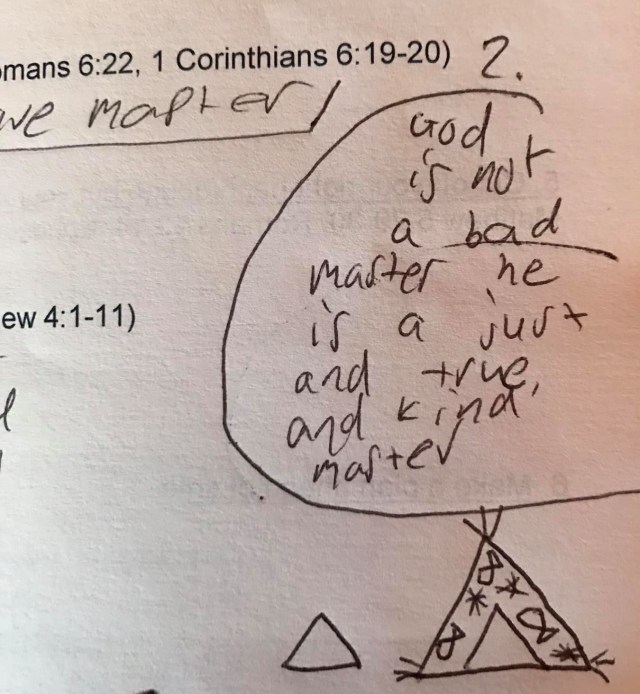 omans 6:22, 1 Corinthians 6:19-20) 2.
ve master
God
is not
a bad
master he
is a just
ew 4:1-11)
and true,
and kind,
master